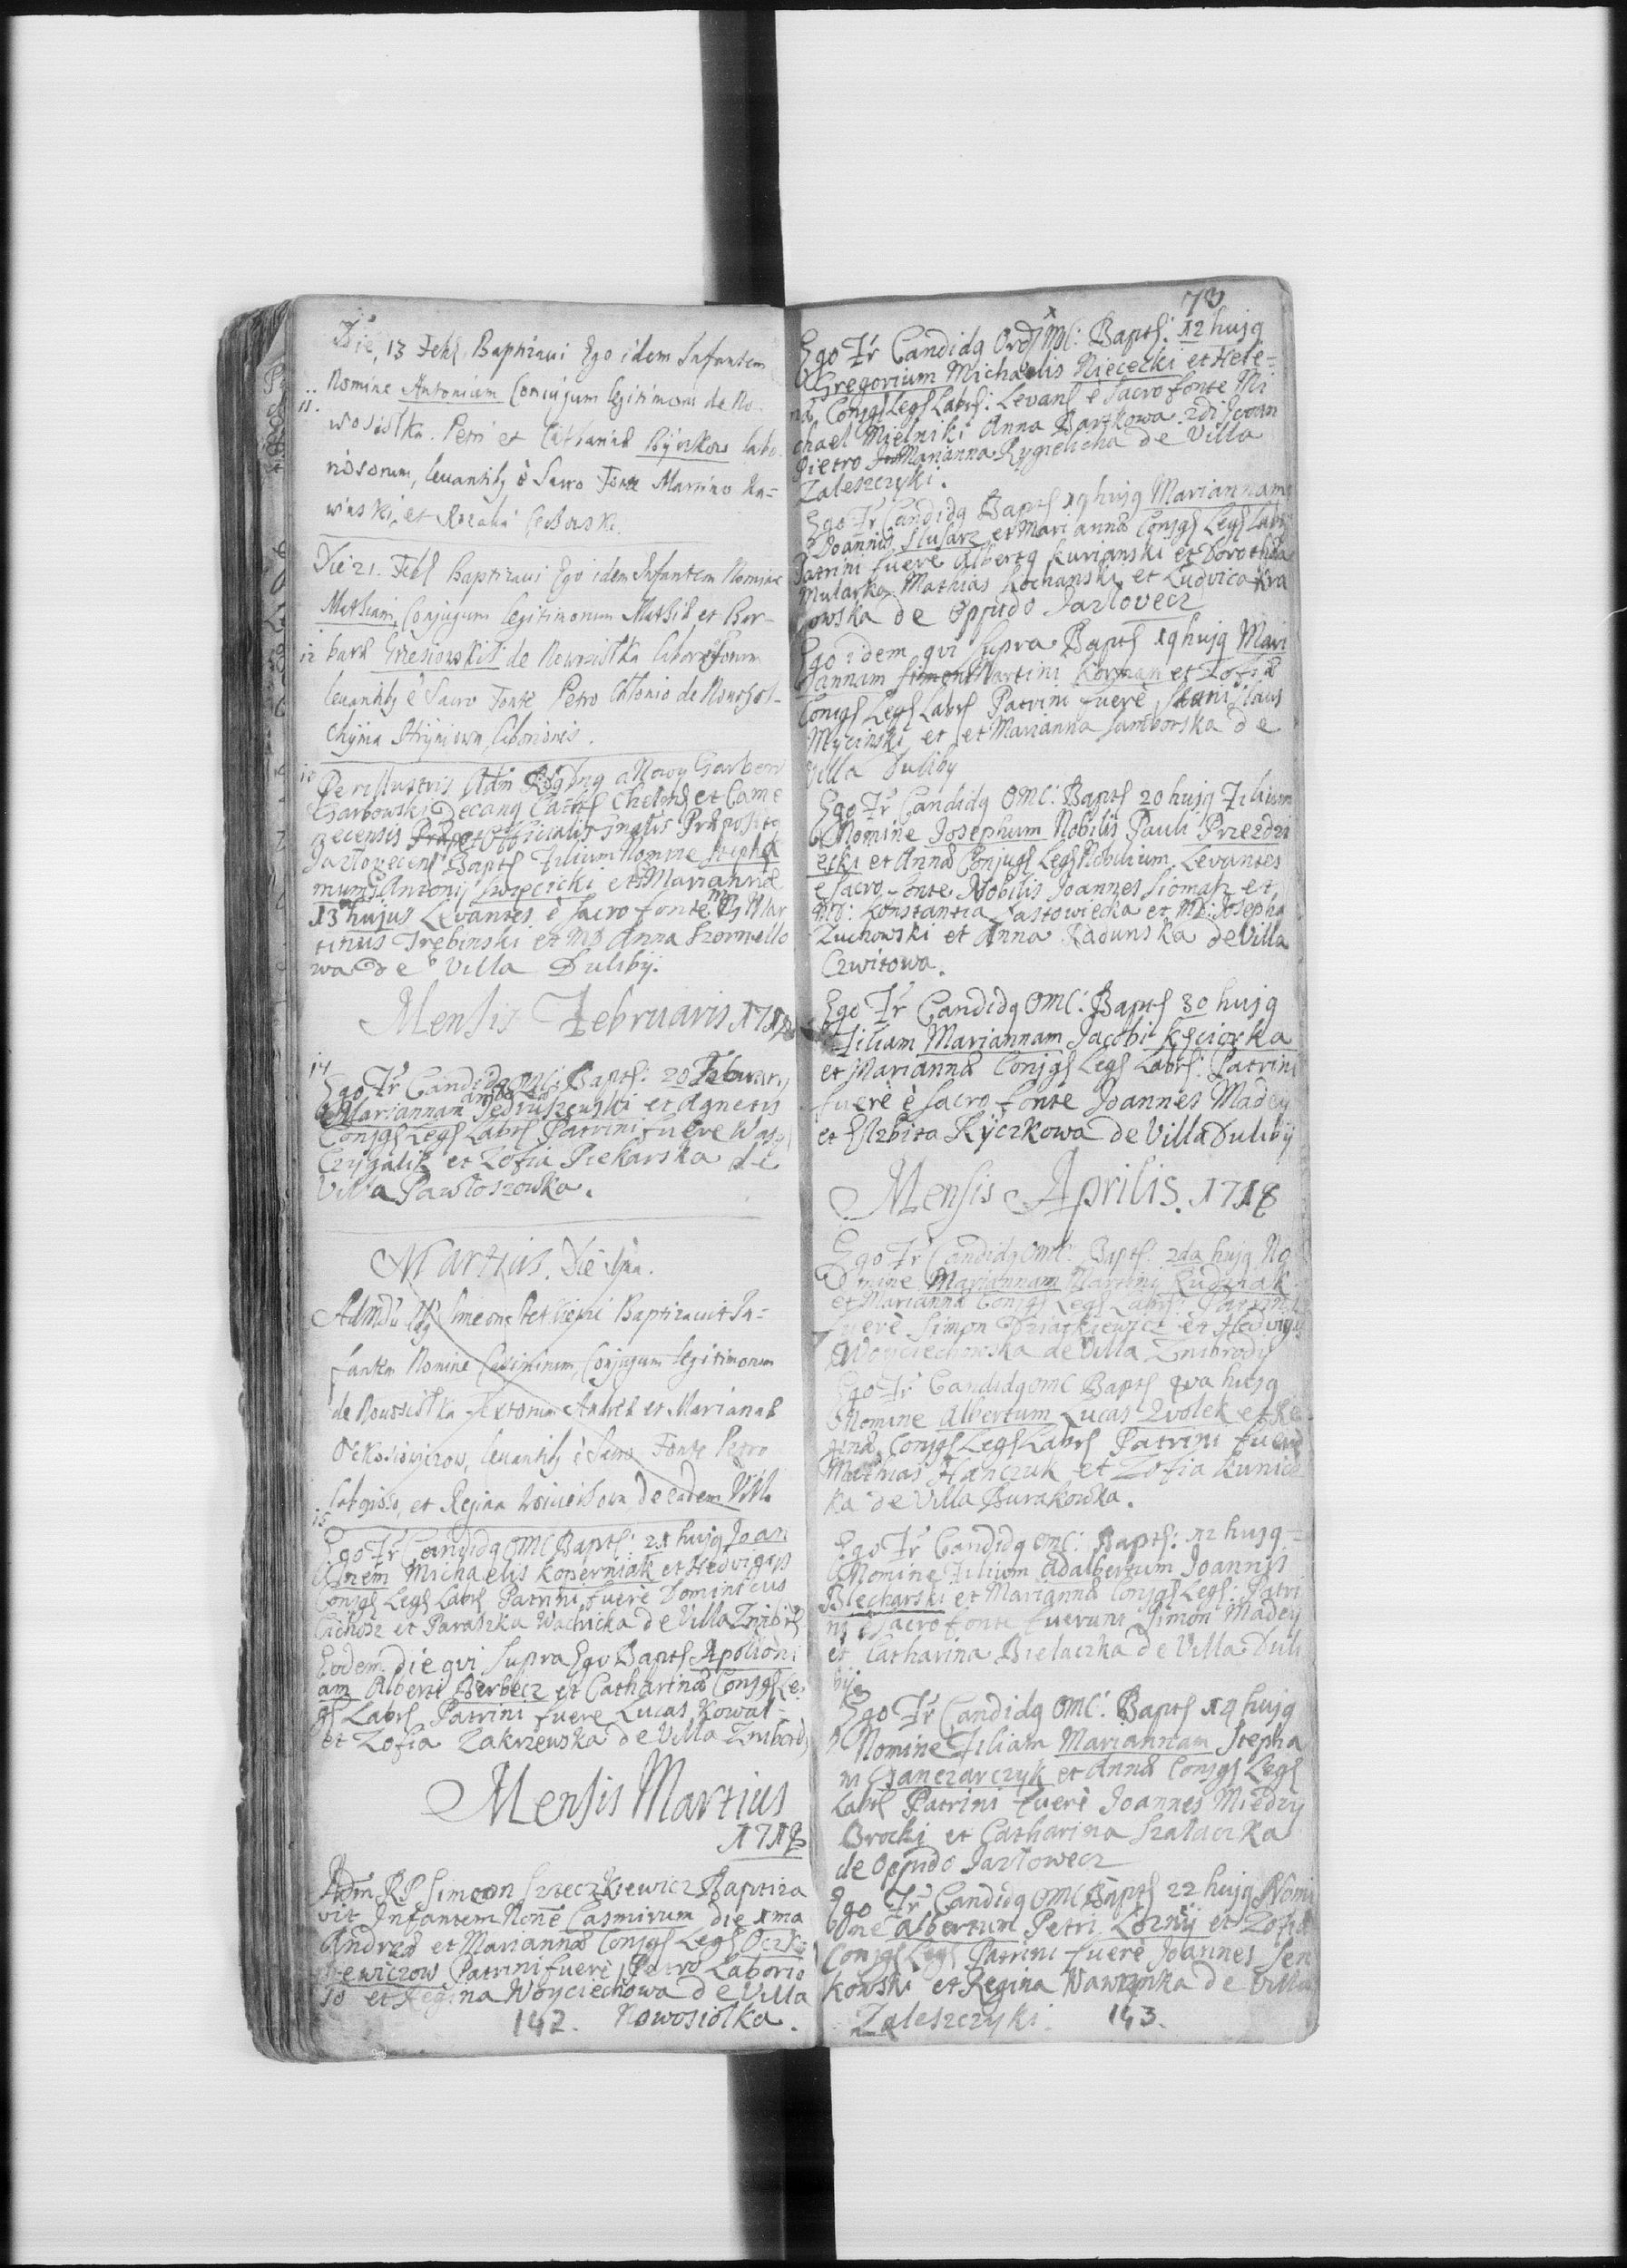 Die, 13 Feb Baptizavi Ego idem Infantem
11. Nomine Antonium Conjugum legitimorum de No-
wosiotka. Petri et Catharinæ labo-
riosorum, levantibq è Sacro Fonte Martino Ra=
winski, et Rozalia
Die 21. Feb Baptizavi Ego idem Infantem Nomine
Mathiam, Conjugum legitimorum Mathiæ et Bar-
12 baræ de Nowosiotka laboriosorum
levantibq è Sacro Fonte Petro de
13 Perillustris Adm Rdg Dng a Nowy Garbow
Garbowski Decang Cathś Chelmś et Came
necensis Officialis Gnalis Præposito
Jazlovecens Bapts Filium Nomine Stepha
num Antonij Swięcicki et Mariannæ
13 hujus Levantes è sacro fonte Mar
tinus Trebinski et MD Anna Szornello
wa de Villa Duliby.
Mensis Februaris 1718
14
Ego Fr Candidq OMC: Bapts: 20 Februarij
Mariannam Jedruszewski et Agnetis
Conjgs Legs Labrs Patrini fuere
Czygalik et Zofia Piekarska de
Villa Pawloszowka.
Martius. Die 1ma.
Admdū Simeon Baptizavit In-
fantem Nomine Casimirum, Conjugum legitimorum
de Nowosiotka Andreæ et Marianæ
levantibq è Sacro Fonte Petro
et Regina de eadem Villa
15
Ego Fr Candidq OMC Bapts: 21 hujq Joan
nem Michaelis Koperniak et Hedvigis
Conjgs Legs Labrs Patrini fuerè Dominicus
Cichosz et Paraszka Wachicka de Villa
Eodem die qvi supra Ego Bapts Apolloni
am Alberti Berbecz et Catharinæ Conjgs Le
gs Labrs Patrini fuere Lucas Kowal
et Zofia Zakrzewska de Villa Znibrody
Mensis Martius
1718
Adm RP Simeon Szteczkiewicz Baptiza
vit Infantem Nōne Casmirum die 1ma
Andreæ et Mariannæ Conjgs Legs Oczko
siewiczow Patrini fuerè Petro Laborio
so et Regina Woyciechowa de Villa
142. Nowosiolka.
73
Ego Fr Candidq Ord MC: Bapts: 12 hujq
Gregorium Michaelis Niececki et Hele=
næ Conjgs Legs Labrs: Levans è Sacro fonte Mi
chael Mielniki Anna Bartkowa 2di Joann
Pietro Marianna Rygielicha de Villa
Zaleszczyki.
Ego Fr Candidq Bapts 19 hujq Mariannam
Joannis Slusarz et Mariannæ Conjgs Legs Labrs
Patrini fuerè Albertq Kurianski et Dorothea
Mularka Mathias Kochanski et Ludvica Kra
kowska de Oppido Jazlovecz
Ego idem qvi supra Bapts 19 hujq Mari
annam Martini Korman et Zofiæ
Conjgs Legs Labrs Patrini fuerè Stanislaus
Mycinski et et Marianna Samborska de
Villa Duliby
Ego Fr Candidq OMC: Bapts 20 hujq Filium
Nomine Josephum Nobilis Pauli Przezdzi
ecki et Annæ Conjugs Legs Nobilium Levantes
è sacro fonte Nobilis Joannes Siomak et
MD: Konstantia Lastowiecka et MD: Josepho
Zuchowski et Anna Radunska de Villa
Czwitowa.
Ego Fr Candidq OMC: Bapts 30 hujq
Filiam Mariannam Jacobi Kęciorka
et Mariannæ Conjgs Legs Labrs: Patrini
fuerè è sacro fonte Joannes Madey
et Elzbita Ryczkowa de Villa Duliby
Mensis Aprilis. 1718
Ego Fr Candidq OMC: Bapts: 2da hujq No
mine Mariannam Martini Kudzhak
et Mariannæ Conjgs Legs Labrs: Patrini
fuerè Simon Dziatkiewicz et Hedvigis
Woyciechowska de Villa Znibrody
Ego Fr Candidq OMC Bapts qva hujq
Nomine Albertum Lucas Zvolek et Re
ginæ Conjgs Legs Labrs Patrini fuerè
Mathias Hanczuk et Zofia Kunice
ka de Villa Burakowka.
Ego Fr Candidq OMC: Bapts: 12 hujq=
Nomine Filium Adalbertum Joannis
Blecharski et Mariannæ Conjgs Legs: Patri
ni è sacro fonte fuerunt Simon Madey
et Catharina Bielaczka de Villa Duli
by
Ego Fr Candidq OMC: Bapts 19 hujq
Nomine Filiam Mariannam Stepha
ni Ganczarczyk et Annæ Conjgs Legs
Labrs Patrini fuerè Joannes Miedzy
Brocki et Catharina Szalaczka
de Oppido Jazlowecz
Ego Fr Candidq OMC Bapts 22 hujq Nomi
ne Albertum Petri Lozny et Zofiæ
Conjgs Legs Patrini fuerè Joannes Sen
kowski et Regina Nawrynka de Villa
Zaleszczyki. 143.